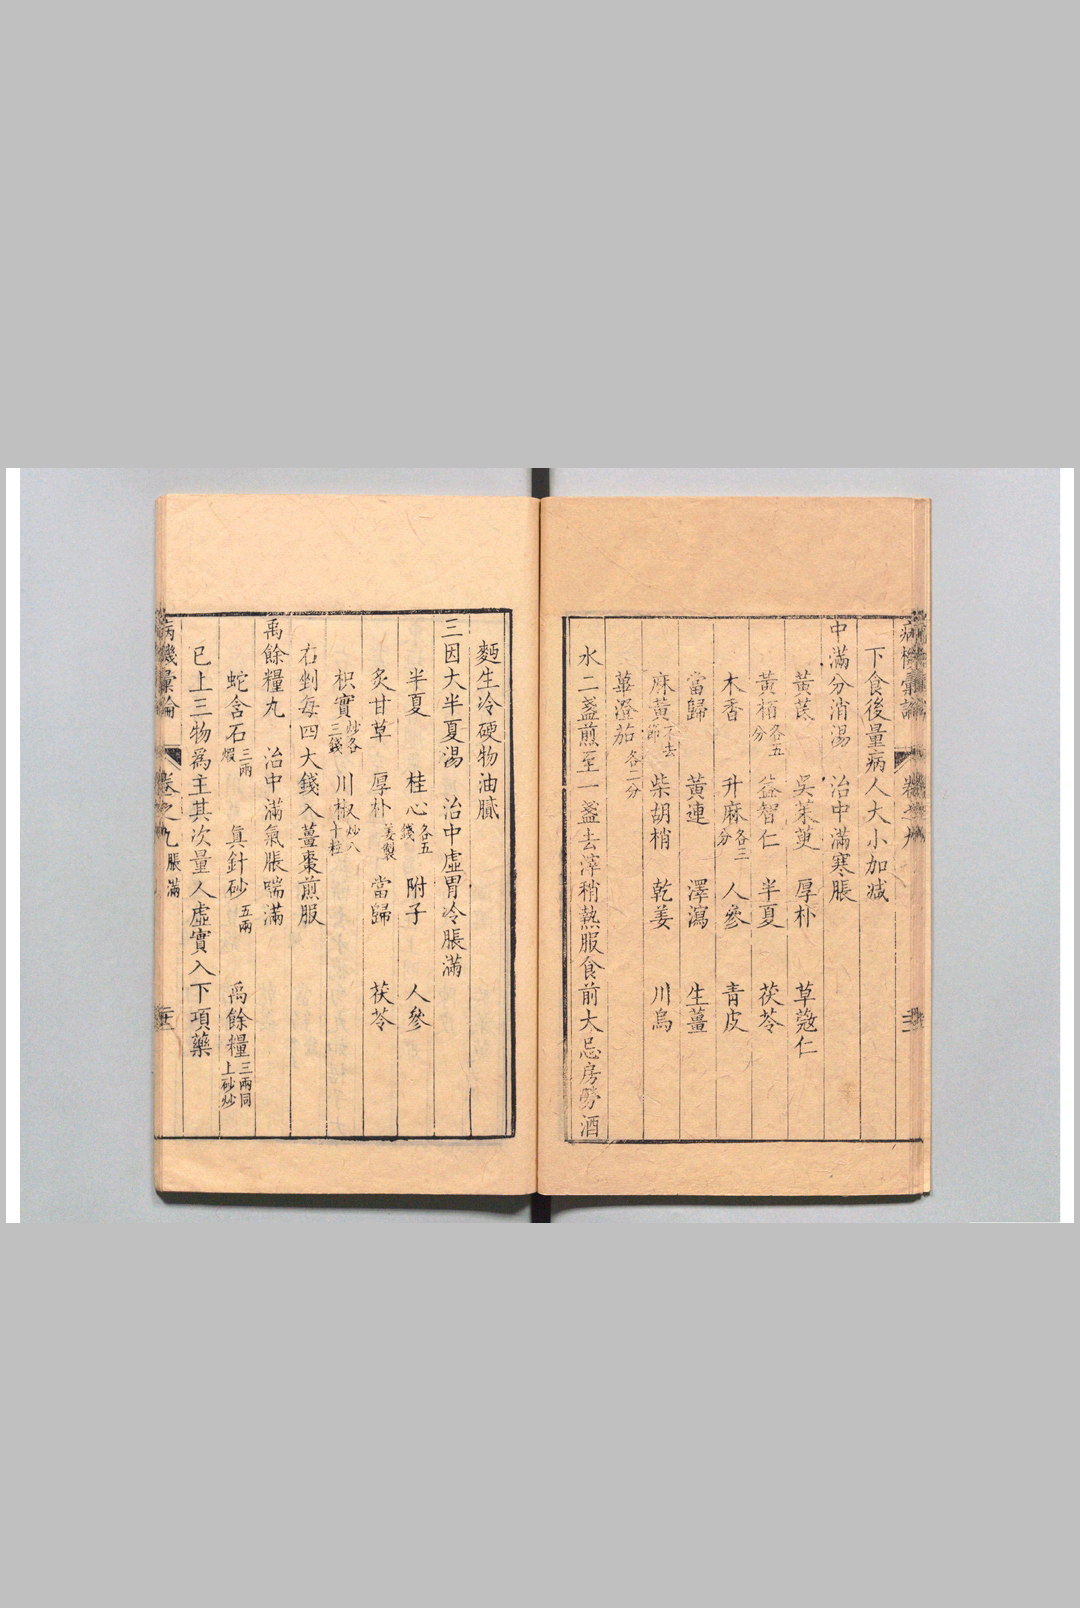 下食後量病人大小加减
中滿分消湯　治中滿寒脹
黃芪　吳茱萸　厚朴　草蔻仁
黃栢各五分　益智仁　半夏　茯苓
木香　升麻各三分　人參　青皮
當歸　黃連　澤瀉　生薑
麻黃不去節　柴胡梢　乾姜　川烏
蓽澄茄各二分
水二盞煎至一盞去滓稍熱服食前大忌房勞酒
麫生冷硬物油膩
三因大半夏湯　治中虛胃冷脹滿
半夏　桂心各五錢　附子　人參
炙甘草　厚朴姜製　當歸　茯苓
枳實炒各三錢　川椒炒八十粒
右剉每四大錢入薑棗煎服
禹餘糧丸　治中滿氣脹喘滿
蛇含石三兩煆　眞針砂五兩　禹餘糧三兩同上砂炒
已上三物爲主其次量人虛實入下項藥
病機彙論　卷之九　脹滿